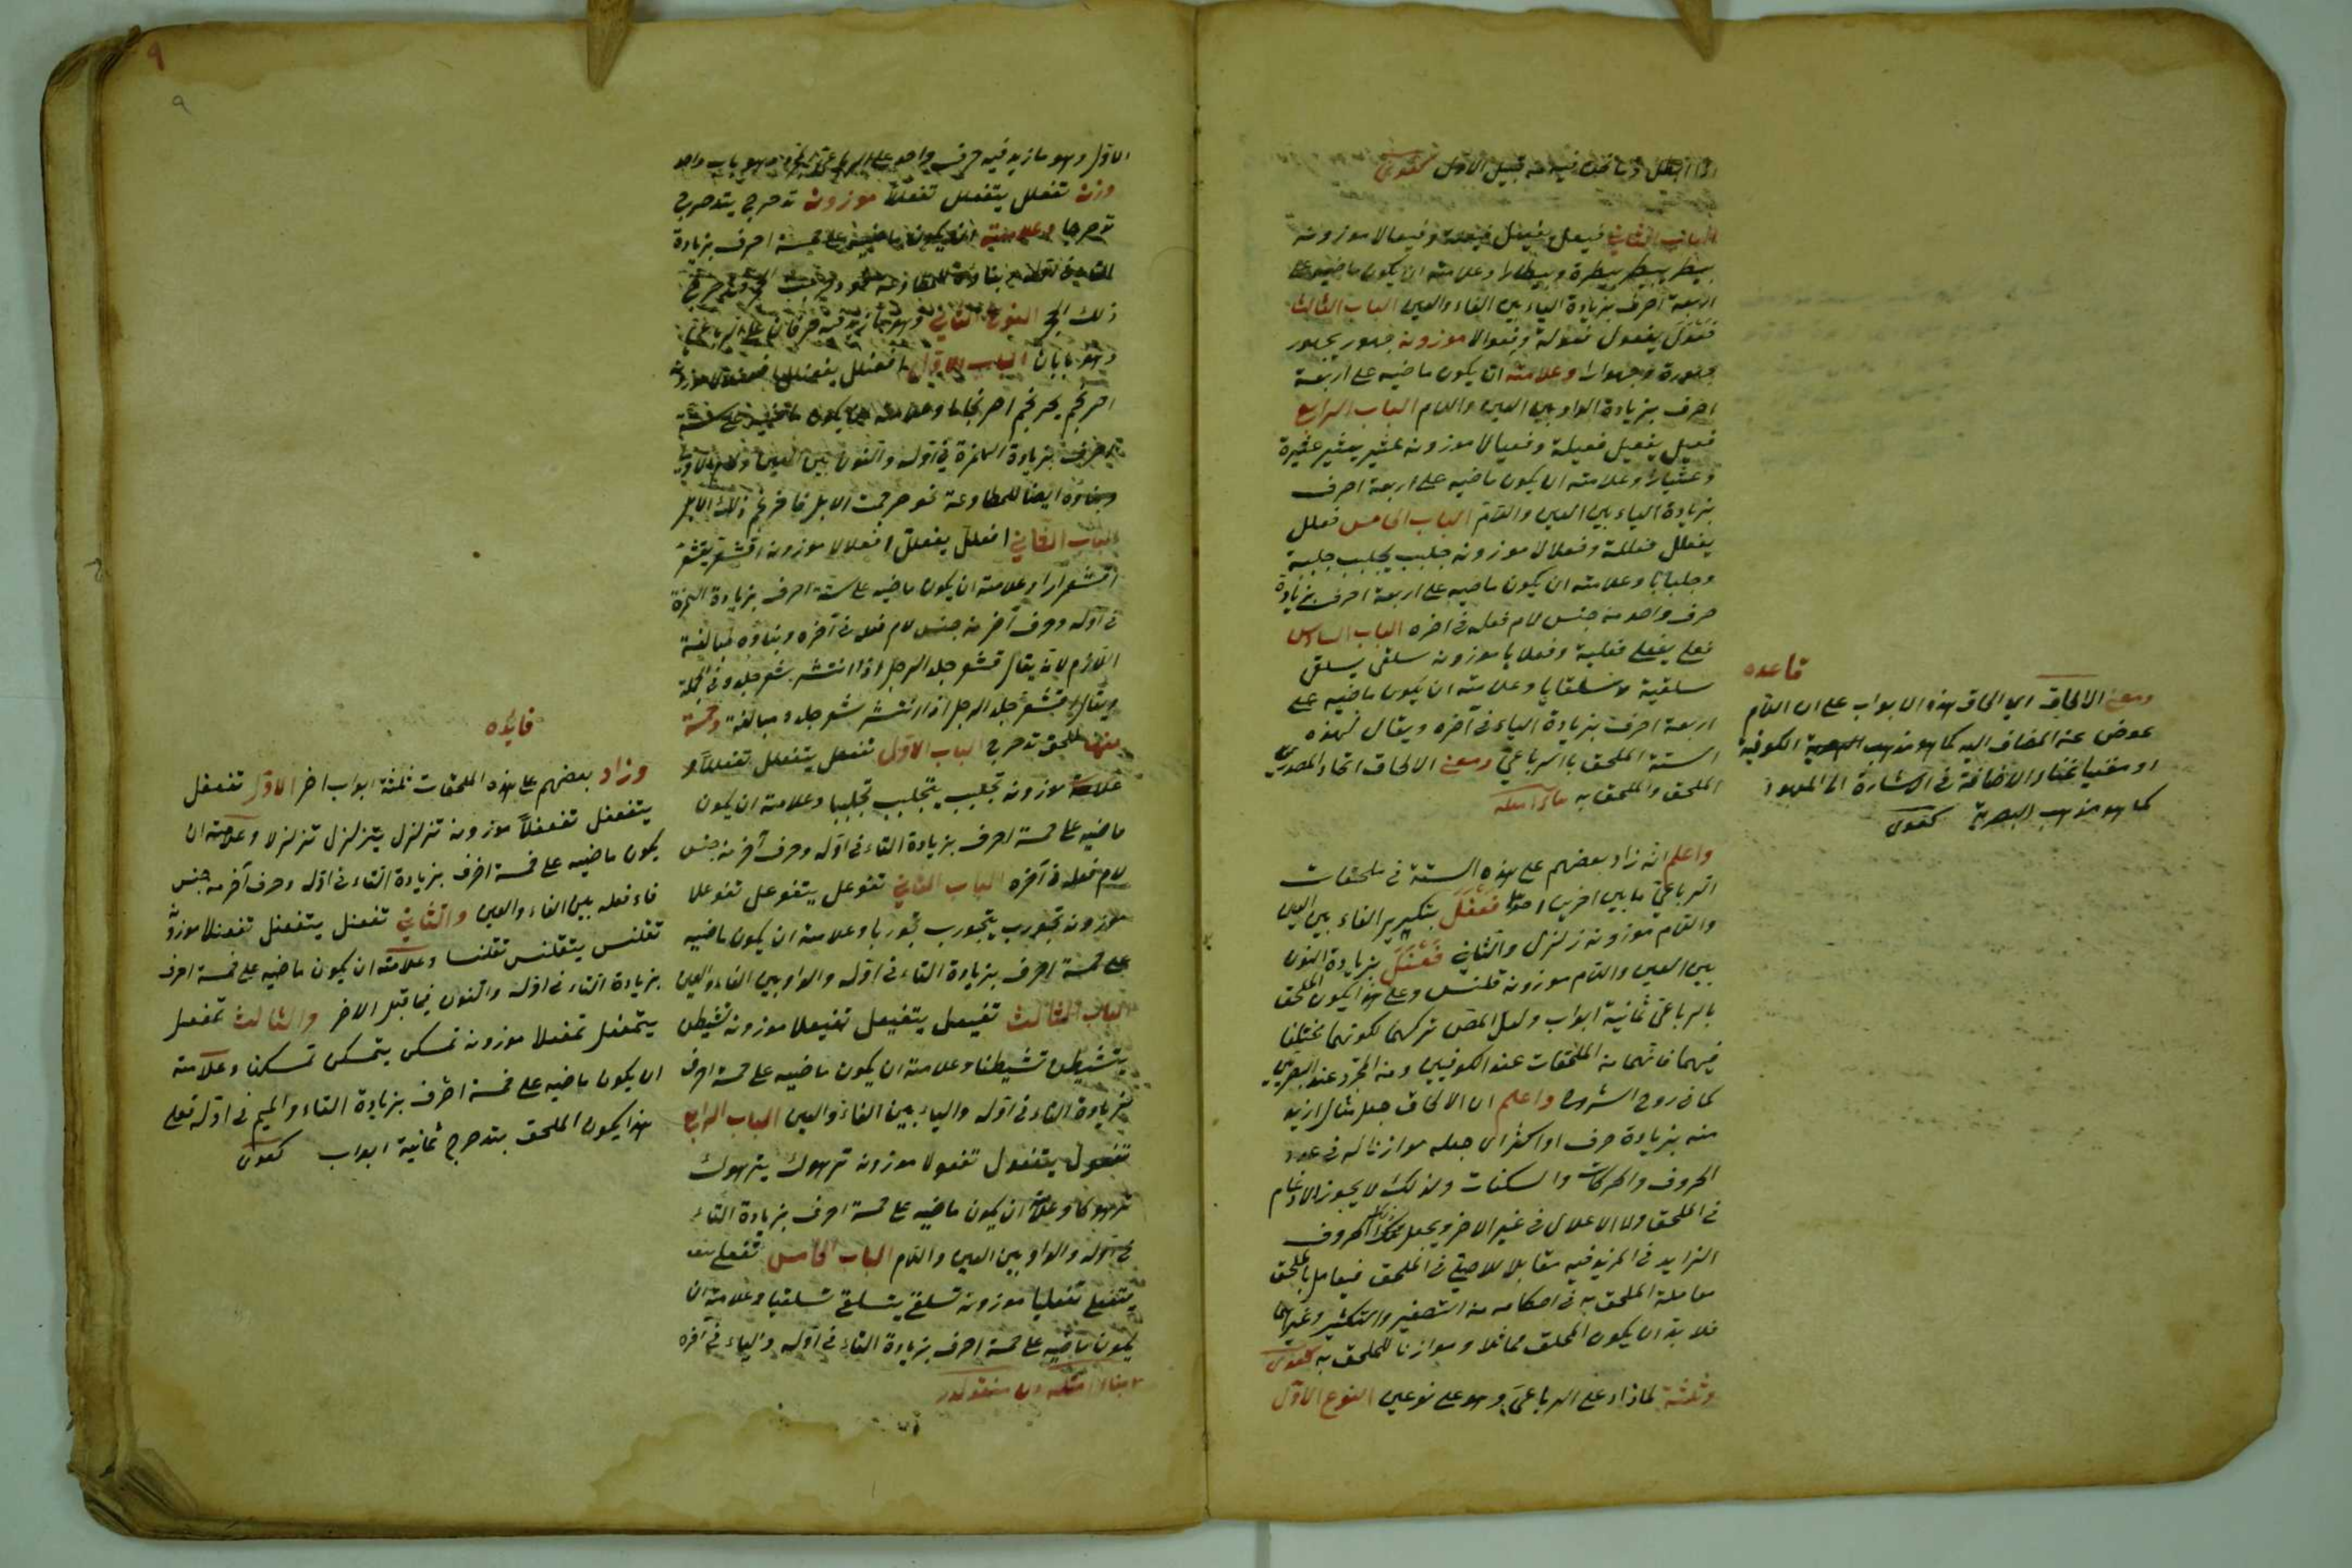 الباب الثاني فيعل يفيعل فيعلة وفيعالا موزونه
بيطر يبيطر بيطرة وبيطارا وعلامته ان يكون ماضيه على
اربعة احرف بزيادة الياء بين الفاء والعين الباب الثالث
فعول يفعول فعولة وفعوالا موزونه جهور يجهور
جهورة وجهوارا وعلامته ان يكون ماضيه على اربعة
احرف بزيادة الواو بين العين واللام الباب الرابع
فعيل يفعيل فعيلة وفعيالا موزونه عثير يعثير عثيرة
وعثيارا وعلامته ان يكون ماضيه على اربعة احرف
بزيادة الياء بين العين واللام الباب الخامس فعلل
يفعلل فعللة وفعلالا موزونه جلبب يجلبب جلببة
وجلبابا وعلامته ان يكون ماضيه على اربعة احرف بزيادة
حرف واحد من جنس لام فعله في آخره الباب السادس
فعلى يفعلي فعلية وفعلايا موزونه سلقى يسلقي
سلقية وسلقايا وعلامته ان يكون ماضيه على
اربعة احرف بزيادة الياء في آخره ويقال لهذه
الستة الملحق بالرباعي ومعنى الالحاق اتحاد المصدرين
الملحق والملحق به
واعلم انه زاد بعضهم على هذه الستة في ملحقات
الرباعي ما بين اخرين احدهما فعفل بتكرير الفاء بين العين
واللام موزونه زلزل والثاني فعنل بزيادة النون
بين العين واللام موزونه قلنس وعلى هذا يكون الملحق
بالرباعي ثمانية ابواب ولعل المص تركهما لكونهما مختلفا
فيهما فانهما من الملحقات عند الكوفيين ومن المجرد عند البصريين
كما في روح الشروح واعلم ان الالحاق جعل مثال ازيد
منه بزيادة حرف او اكثر اي جعله موازنا له في عدد
الحروف والحركات والسكنات ولذلك لا يجوز الادغام
في الملحق ولا الاعلال في غير الاخر ويجعل ذلك الحروف
الزايد في المزيد فيه مقابلا للاصلي في الملحق فيعامل بالملحق
معاملة الملحق به في احكامه من التصغير والتكثير وغيرهما
فلا بد ان يكون الملحق مماثلا وموازنا للملحق به
وثلثة لما زاد على الرباعي وهو على نوعين النوع الاول
قاعده
ومعنى الالحاق اي الحاق هذه الابواب على ان اللام
عوض عن المضاف اليه كما هو مذهب الكوفية
او مغنيا غناء الاضافة في الاشارة الى المعهود
كما هو مذهب البصرية
٩
٩
الاول وهو ما زيد فيه حرف واحد على الرباعي المجرد وهو باب واحد
وزنه تفعلل يتفعلل تفعللا موزونه تدحرج يتدحرج
تدحرجا وعلامته ان يكون ماضيه على خمسة احرف بزيادة
التاء في اوله وبناؤه للمطاوعة نحو دحرجت الحجر فتدحرج
ذلك الحجر النوع الثاني وهو ما زيد فيه حرفان على الرباعي
وهو بابان الباب الاول افعنلل يفعنلل افعنلالا موزونه
احرنجم يحرنجم احرنجاما وعلامته ان يكون ماضيه على ستة
احرف بزيادة الهمزة في اوله والنون بين العين واللام الاولى
وبناؤه ايضا للمطاوعة نحو حرجمت الابل فاحرنجم ذلك الابل
الباب الثاني افعلل يفعلل افعلالا موزونه اقشعر يقشعر
اقشعرارا وعلامته ان يكون ماضيه على ستة احرف بزيادة الهمزة
في اوله وحرف آخر من جنس لام فعله في آخره وبناؤه لمبالغة
اللازم لانه يقال قشعر جلد الرجل اذا انتشر شعر جلده في الجملة
ويقال اقشعر جلد الرجل اذا انتشر شعر جلده مبالغة وخمسة
منها لملحق تدحرج الباب الاول تفعلل يتفعلل تفعللا
موزونه تجلبب يتجلبب تجلببا وعلامته ان يكون
ماضيه على خمسة احرف بزيادة التاء في اوله وحرف آخر من جنس
لام فعله في آخره الباب الثاني تفوعل يتفوعل تفوعلا
موزونه تجورب يتجورب تجوربا وعلامته ان يكون ماضيه
على خمسة احرف بزيادة التاء في اوله والواو بين الفاء والعين
الباب الثالث تفيعل يتفيعل تفيعلا موزونه تشيطن
يتشيطن تشيطنا وعلامته ان يكون ماضيه على خمسة احرف
بزيادة التاء في اوله والياء بين الفاء والعين الباب الرابع
تفعول يتفعول تفعولا موزونه ترهوك يترهوك
ترهوكا وعلامته ان يكون ماضيه على خمسة احرف بزيادة التاء
في اوله والواو بين العين واللام الباب الخامس تفعلى
يتفعلى تفعليا موزونه تسلقى يتسلقى تسلقيا وعلامته ان
يكون ماضيه على خمسة احرف بزيادة التاء في اوله والياء في آخره
فايده
وزاد بعضهم على هذه الملحقات ثلثة ابواب اخر الاول تفعفل
يتفعفل تفعفلا موزونه تزلزل يتزلزل تزلزلا وعلامته ان
يكون ماضيه على خمسة احرف بزيادة التاء في اوله وحرف آخر من جنس
فاء فعله بين الفاء والعين والثاني تفعنل يتفعنل تفعنلا موزونه
تقلنس يتقلنس تقلنسا وعلامته ان يكون ماضيه على خمسة احرف
بزيادة التاء في اوله والنون فيما قبل الاخر والثالث تمفعل
يتمفعل تمفعلا موزونه تمسكن يتمسكن تمسكنا وعلامته
ان يكون ماضيه على خمسة احرف بزيادة التاء والميم في اوله فعلى
هذا يكون الملحق بتدحرج ثمانية ابواب